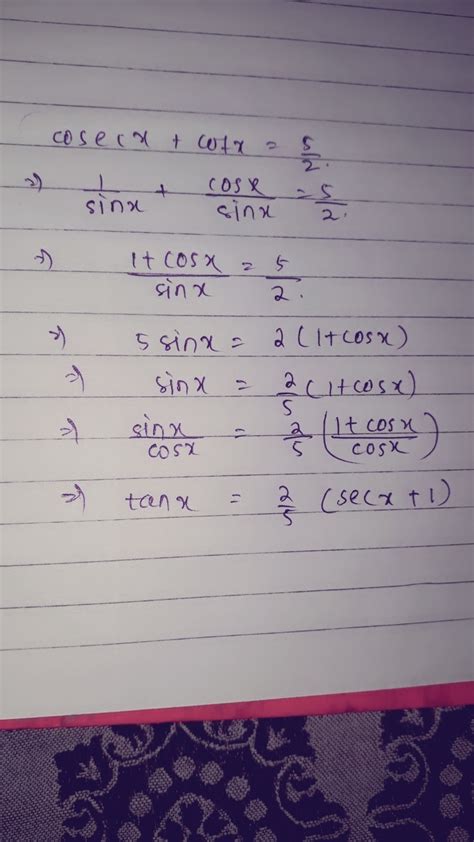 cosecx + cotx = 5/2.
=> 1/sinx + cosx/sinx = 5/2.
=> 1+cosx/sinx = 5/2.
=> 5sinx = 2(1+cosx)
=> sinx = 2/5(1+cosx)
=> sinx/cosx = 2/5(1+cosx/cosx)
=> tanx = 2/5 (secx+1)